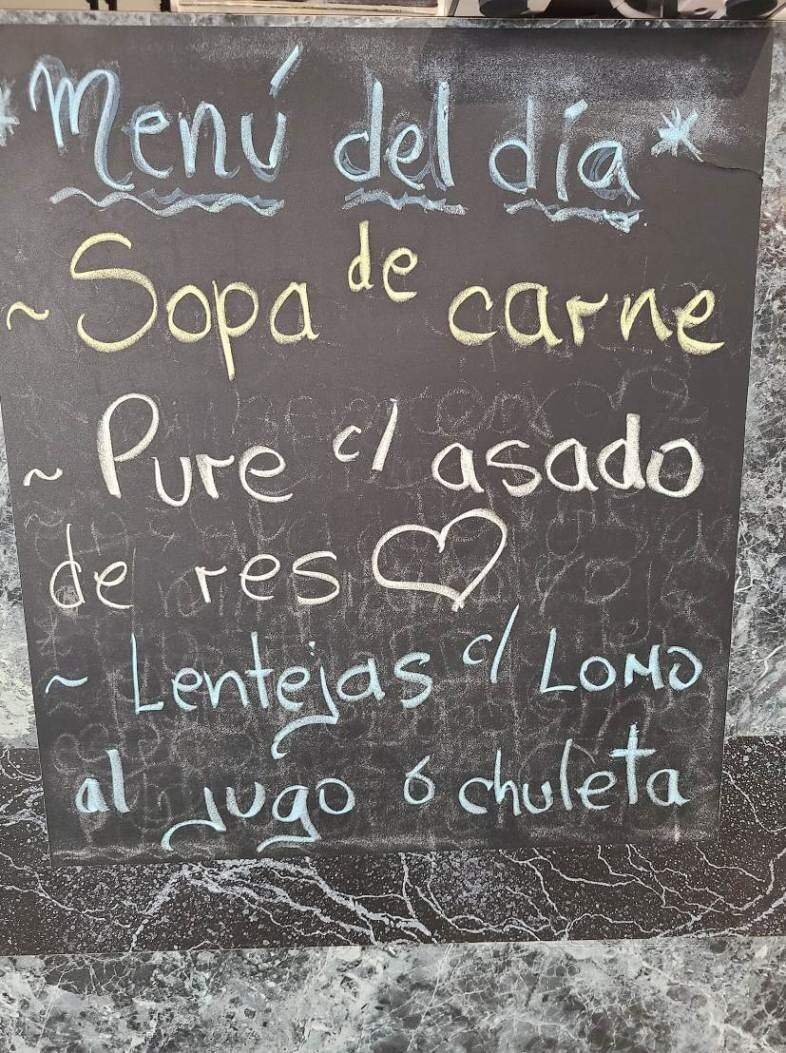 *Menú del día*
~ Sopa de carne
~ Pure c/ asado
de res ♡
~ Lentejas c/ LOMO
al jugo ó chuleta